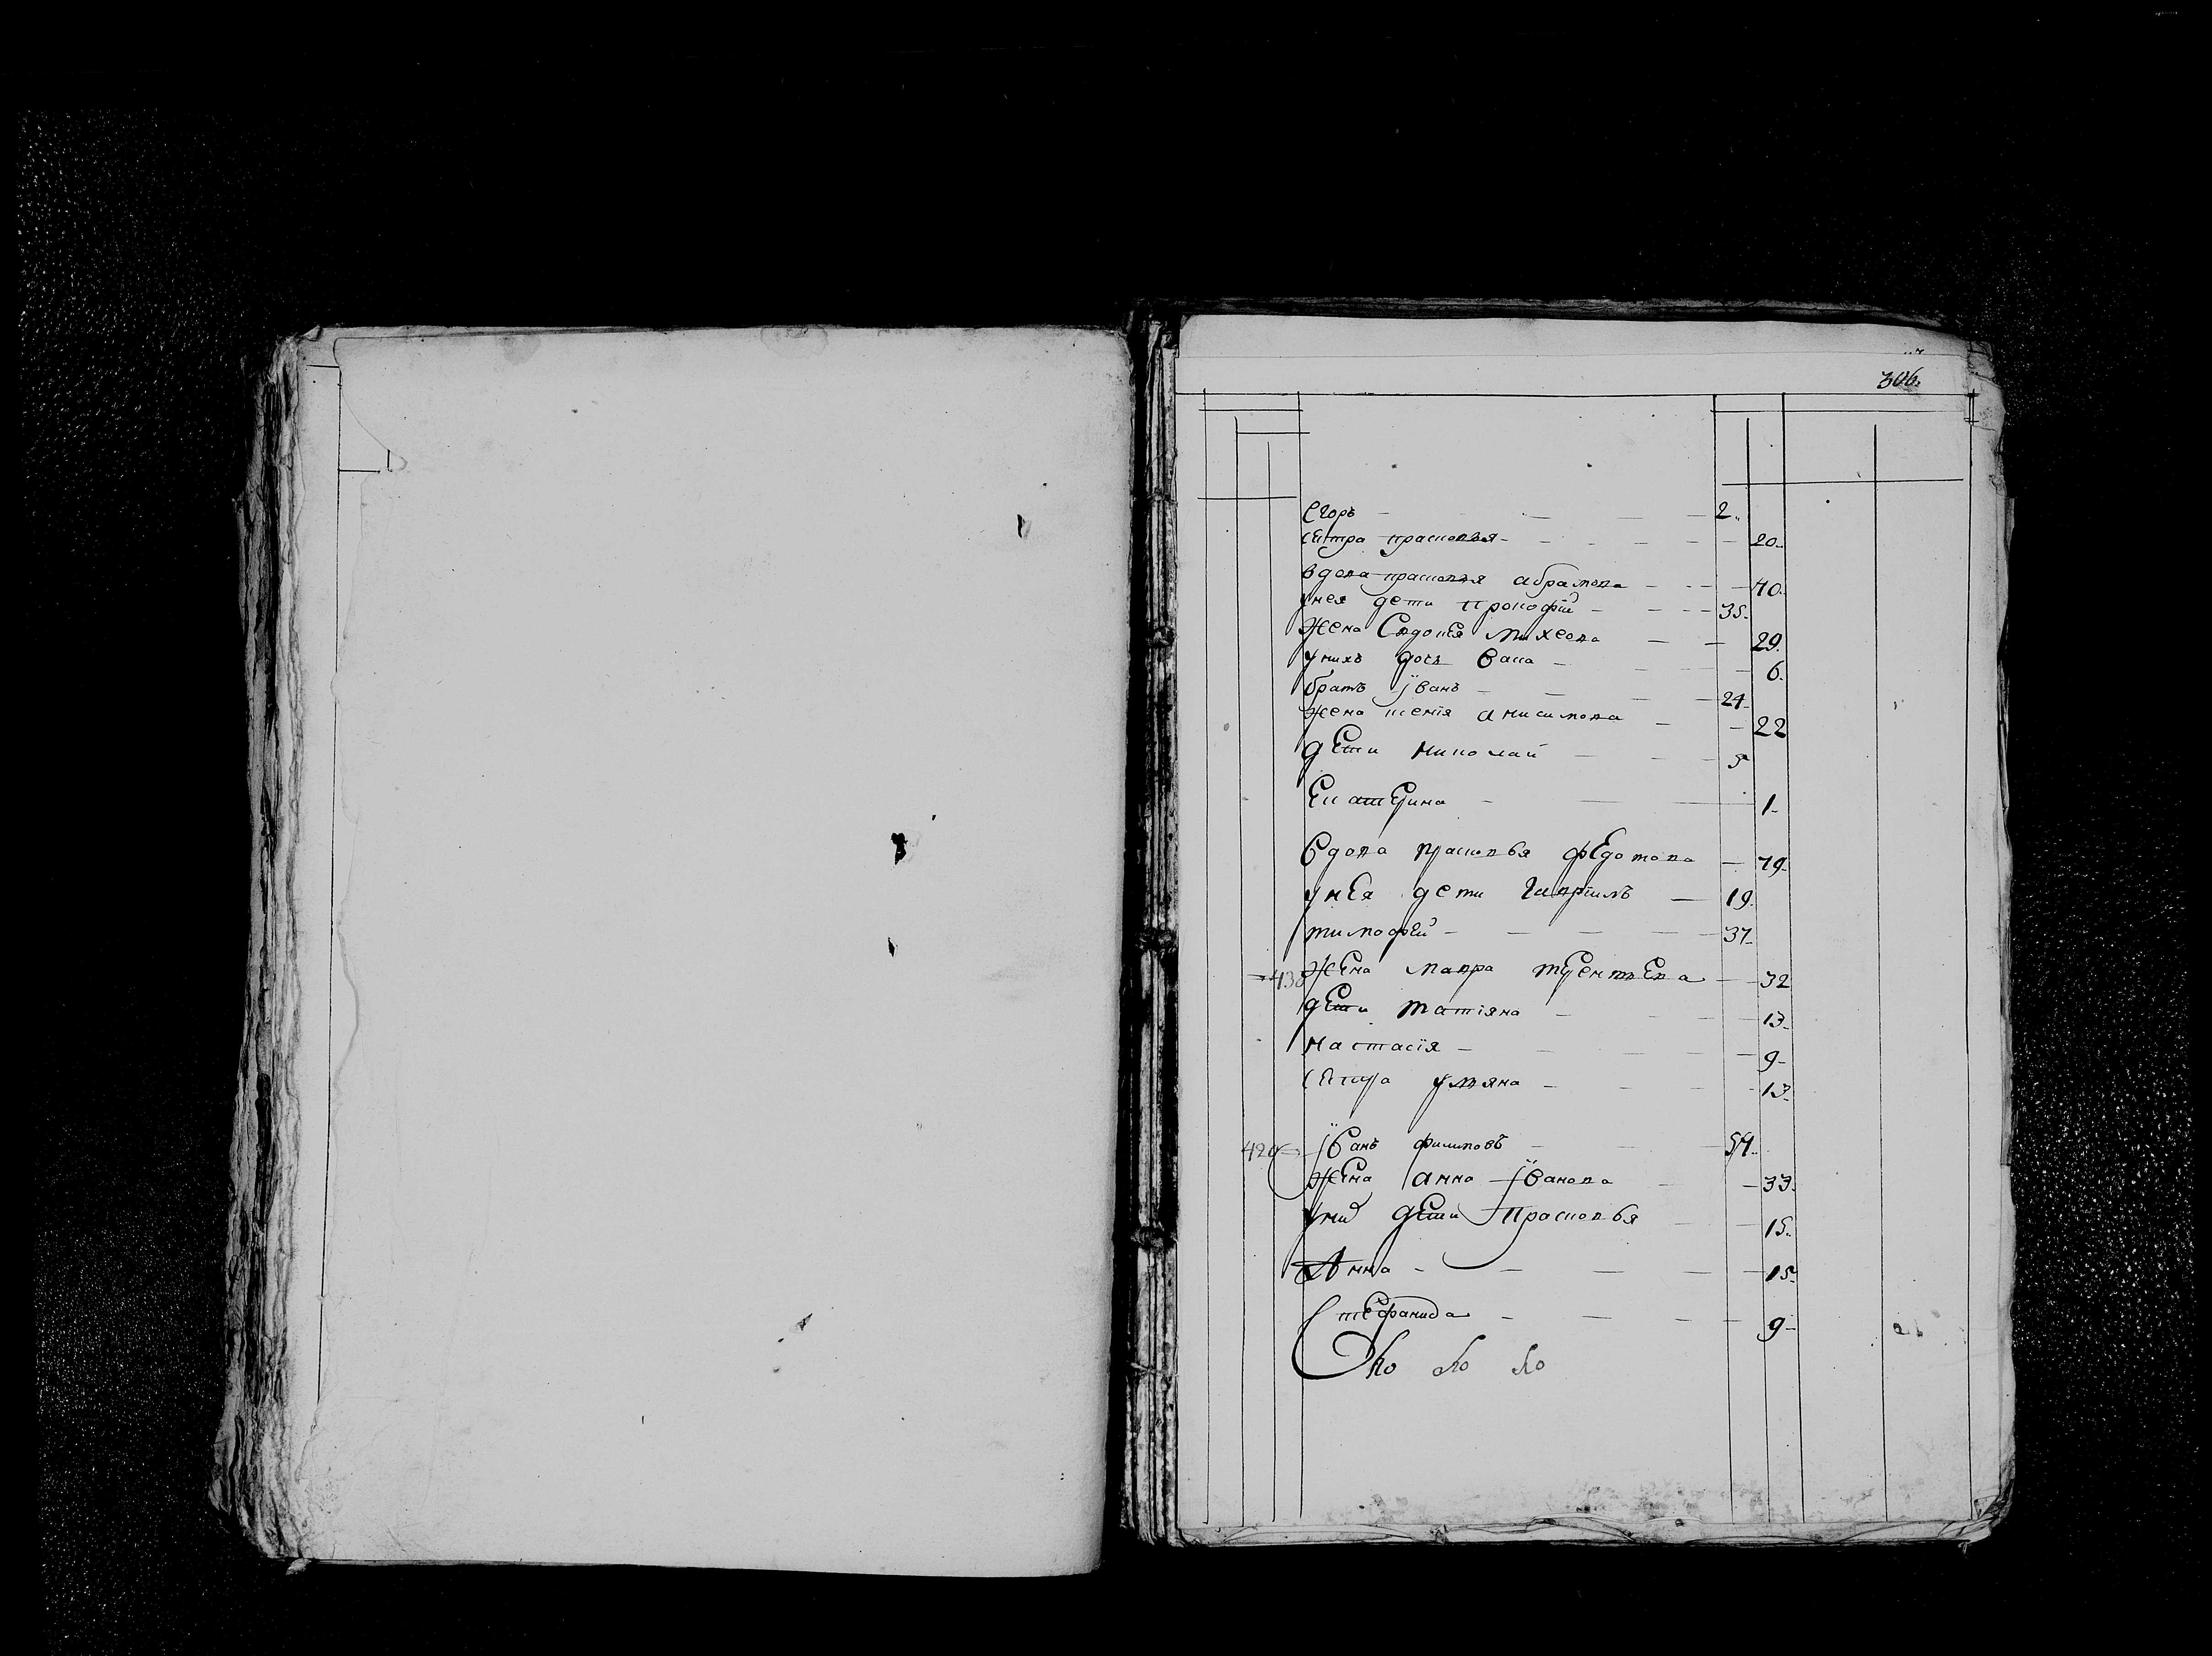 306.
Егоръ — — — 2.
сестра праскопья — — — 20.
вдова праскопья абрамова — — 40.
унея дети Прокофїй — — 35.
жена Евдокея михеова — — 29.
унихъ дочь Васа — — 6.
братъ Їванъ — — 24.
жена ксенїя анисимова — — 22
дети николай — — 5
Екатерина — — 1
Вдова праскопья федотова — 79
унея дети Гаврїилъ — 19.
тимофей — — — 37
жена мавра терентьева — 32
дети татїяна — — 13
настасїя — — — 9
сестра ульяна — — 13
420 Їванъ филиповъ — — 54.
жена анна Їванова — 33.
унихъ дети Прасковья — 15.
Анна — — — 15
Стефанида — — — 9